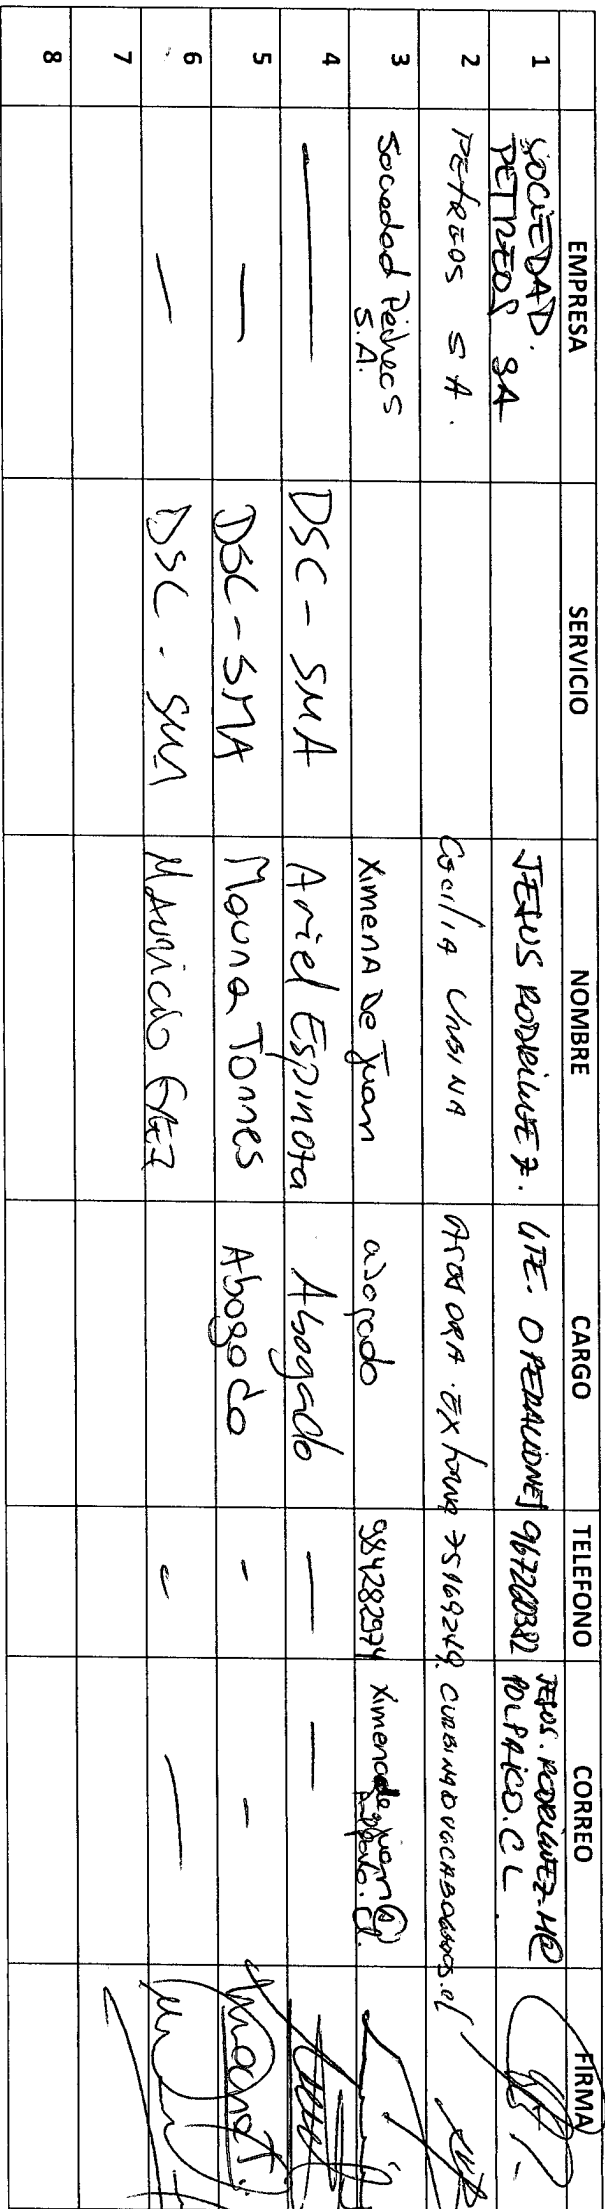 EMPRESA SERVICIO NOMBRE CARGO TELEFONO CORREO FIRMA
1 SOCIEDAD. PETREOS SA JESUS RODRIGUEZ. GTE. OPERACIONES 967260382 JESUS.RODRIGUEZ-H@
POLPAICO.CL
2 PETREOS SA. Cecilia URBINA ASESORA Externa 75169249
3 Sociedad Pétreos S.A. XimenA De Juan abogado 984282974
4 — DSC - SMA Ariel Espinoza Abogado — —
5 — DSC - SMA Mauna Torres Abogado - -
6 — DSC - SMA MAuricio - —
7
8